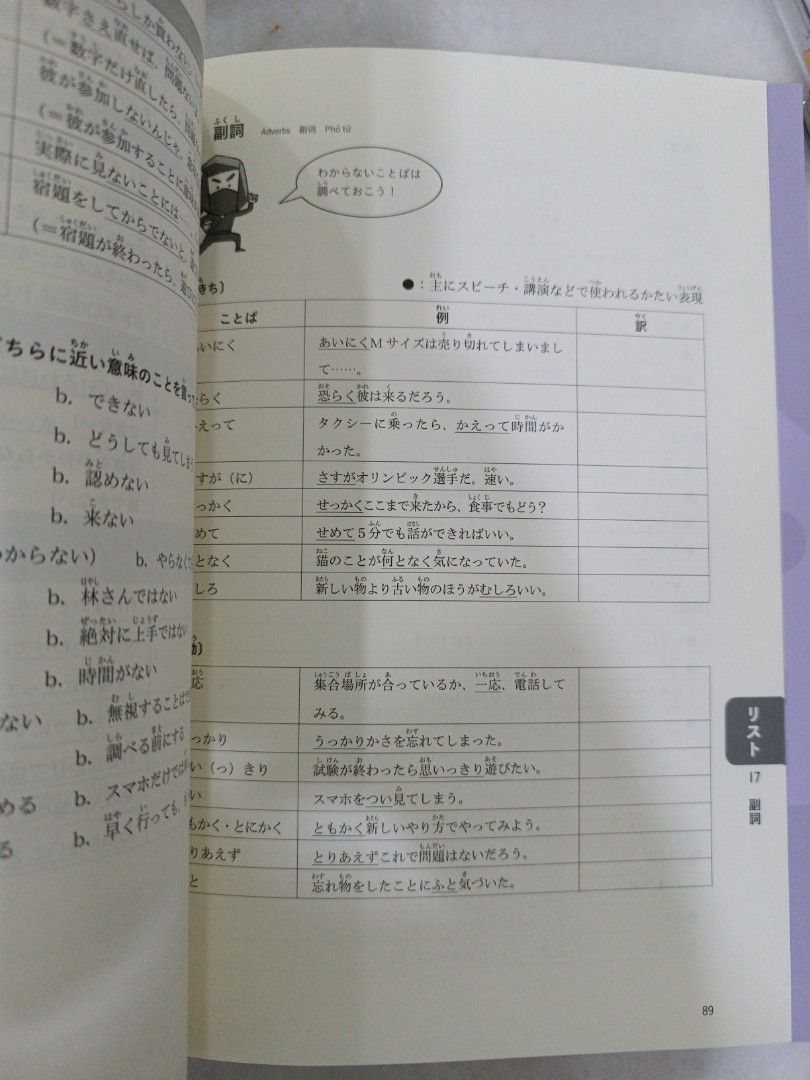 らしか買わない
数字さえ直せば、問題ない
(=数字だけ直したら、問題
彼が参加しないんじゃ、
(=彼が参加することに
実際に見ないことには……
宿題をしてからでないと、
(=宿題が終わったら、
どちらに近い意味のことを言っ
b. できない
b. どうしても見てしまう
b. 認めない
b. 来ない
からない) b. やらなくて
b. 林さんではない
b. 絶対に上手ではない
b. 時間がない
ない b. 無視することは
b. 調べる前にする
める b. スマホだけでは
る b. 早く行っても、
副詞 Adverbs 副词 Phó từ
わからないことばは
調べておこう!
きち〕
●:主にスピーチ・講演などで使われるかたい表現
ことば 例 訳
いにく あいにくMサイズは売り切れてしまいまし
て……。
らく 恐らく彼は来るだろう。
えって タクシーに乗ったら、かえって時間がか
かった。
すが(に) さすがオリンピック選手だ。速い。
っかく せっかくここまで来たから、食事でもどう?
めて せめて5分でも話ができればいい。
となく 猫のことが何となく気になっていた。
しろ 新しい物より古い物のほうがむしろいい。
動〕
応 集合場所が合っているか、一応、電話して
みる。
っかり うっかりかさを忘れてしまった。
い(っ)きり 試験が終わったら思いっきり遊びたい。
い スマホをつい見てしまう。
もかく・とにかく ともかく新しいやり方でやってみよう。
りあえず とりあえずこれで問題はないだろう。
と 忘れ物をしたことにふと気づいた。
リスト
17
副詞
89